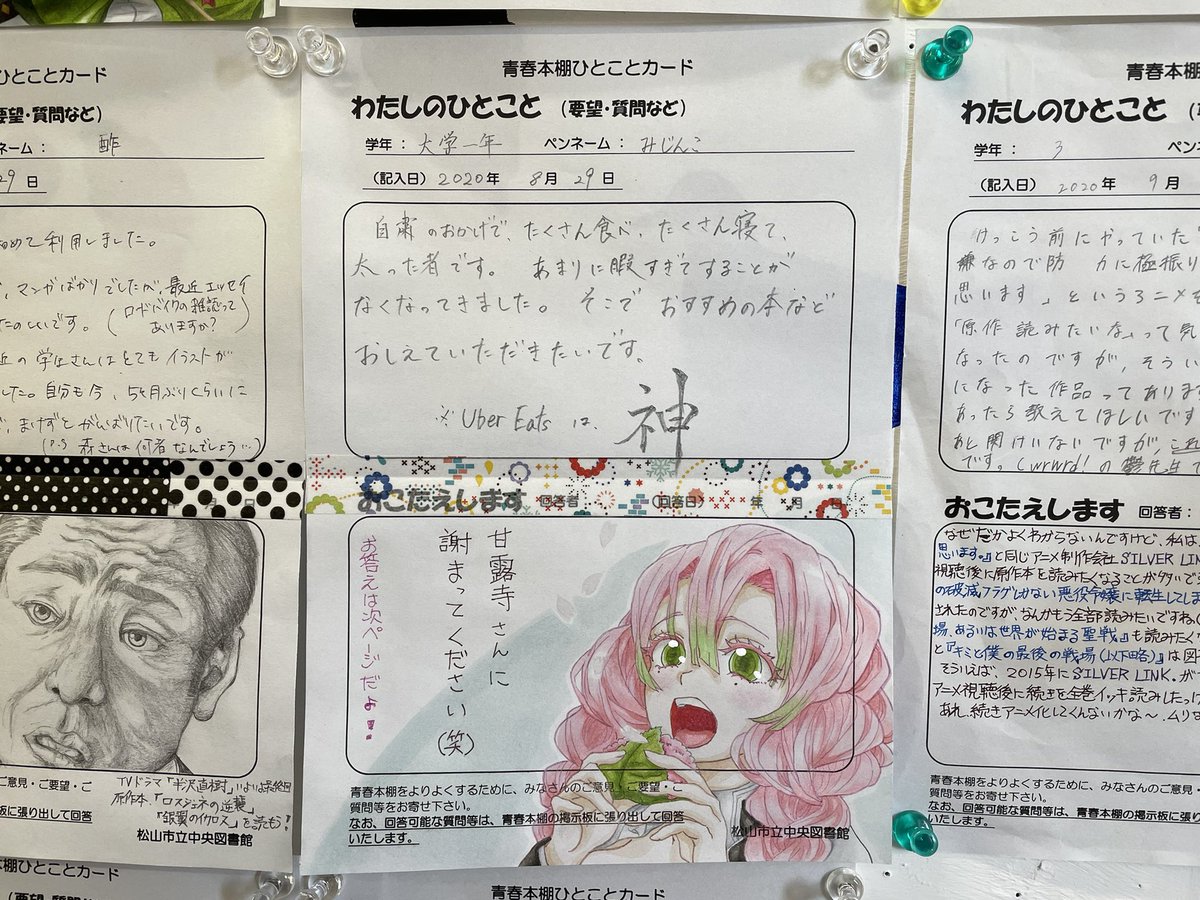 ひとことカード
要望・質問など)
ネーム： 酢
29日
初めて利用しました。
、マンガばかりでしたが、最近エッセイ
(ロードバイクの雑誌って
ありますか?)
イラストが
した。自分も今、5ヶ月ぶりくらいに
、まけずとがんばりたいです。
(P.S 森さんは何者なんでしょう…)
TVドラマ「半沢直樹」いよいよ最終回
原作本、「ロスジェネの逆襲」
「銀翼のイカロス」を読も!
ご意見・ご要望・ご
板に張り出して回答
松山市立中央図書館
青春本棚ひとことカード
わたしのひとこと (要望・質問など)
学年： 大学一年 ペンネーム： みじんこ
(記入日) 2020年 8月 29日
自粛のおかげで、たくさん食べ、たくさん寝て、
太った者です。 あまりに暇すぎてすることが
なくなってきました。そこで おすすめの本など
おしえていただきたいです。
※Uber Eats は、神
おこたえします 回答者 (回答日) 年 月 日
甘露寺さんに
謝まってください(笑)
お答えは次ページだよ!
青春本棚をよりよくするために、みなさんのご意見・ご要望・ご
質問等をお寄せ下さい。
なお、回答可能な質問等は、青春本棚の掲示板に張り出して回答
いたします。
松山市立中央図書館
青春本棚
わたしのひとこと
学年： 3 ペン
(記入日) 2020年 9月
けっこう前にやっていた
嫌なので防 力に極振り
思います」というアニメを
「原作 読みたいな」って気
なったの ですが、そうい
になった 作品ってあります
あったら教えてほしいです
あと関けいないですが、これ
です。(wrwrd!の
おこたえします 回答者：
なぜだかよくわからないんですけど、私は
思います。』と同じアニメ制作会社SILVER LIN
視聴後に原作本を読みたくなることが多いで
の破滅フラグしかない悪役令嬢に転生してしま
されたのですが、なんかもう全部読みたいですね。(
場、あるいは世界が始まる聖戦』も読みたく
と『キミと僕の最後の戦場(以下略)』は図
そういえば、2015年にSILVER LINK.が
アニメ視聴後に続きを全巻イッキ読みしたっけ
あれ、続きアニメ化してくんないかな〜、ムリ
青春本棚をよりよくするために、みなさんのご意見
質問等をお寄せ下さい。
なお、回答可能な質問等は、青春本棚の掲示板に張り
いたします。
本棚ひとことカード
青春本棚ひとことカード